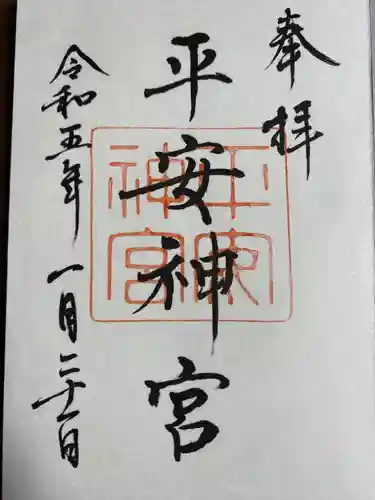 奉拝
平安神宮
令和五年 一月二十一日
平安
神宮